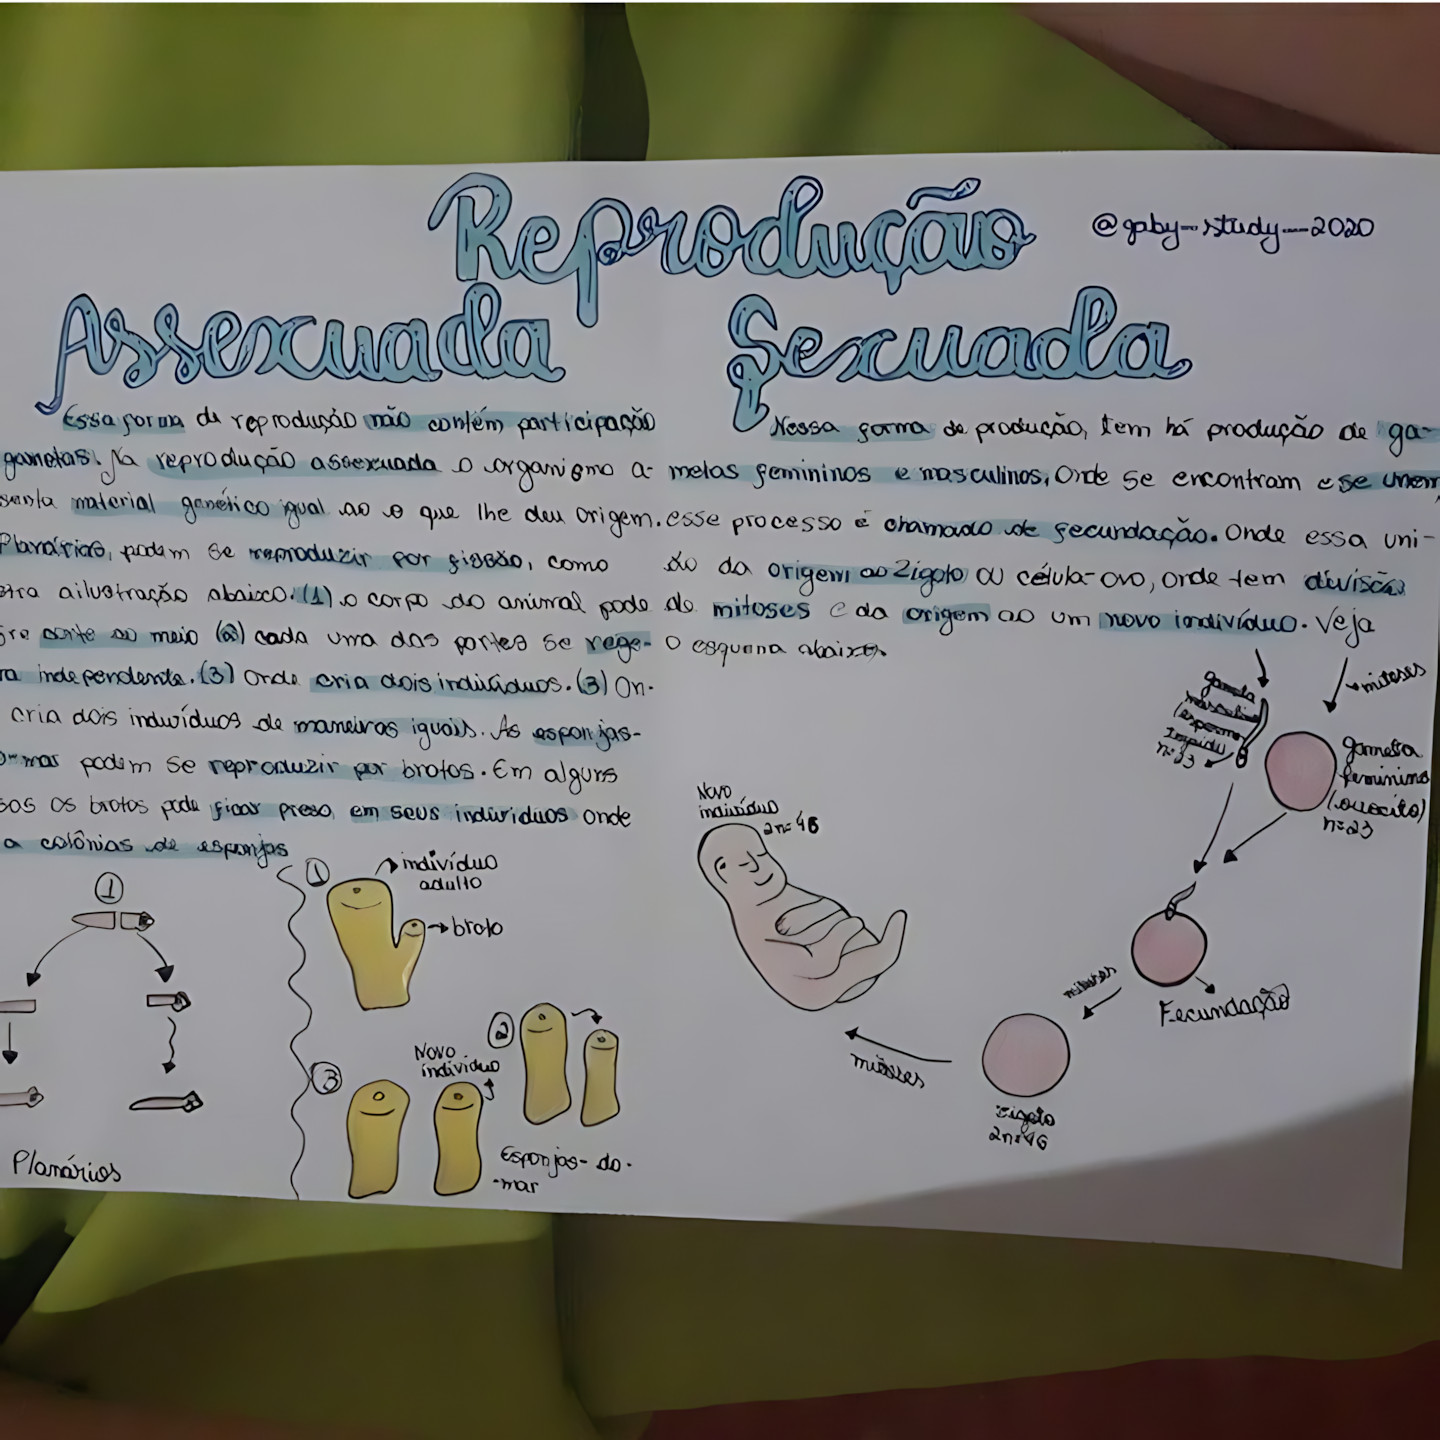 Reprodução
@gaby-study-2020
Assexuada
Essa forma de reprodução não contém participação
gametas. Na reprodução assexuada o organismo a-
senta material genético igual ao o que lhe deu origem.
Planárias, podem se reproduzir por fissão, como
stra ailustração abaixo. (1) o corpo do animal pode
fre corte ao meio (2) cada uma das partes se rege-
ra independente. (3) Onde cria dois indivíduos. (3) On-
cria dois indivíduos de maneiras iguais. As esponjas-
o-mar podem se reproduzir por brotos. Em alguns
sos os brotos pode ficar preso em seus indivíduos onde
a colônias de esponjas
1
Planários
1
indivíduo
adulto
broto
2
3
Novo
indivíduo
Esponjas-do-
-mar
Sexuada
Nessa forma de produção, tem há produção de ga-
metas femininos e masculinos, Onde se encontram e se unem,
esse processo é chamado de fecundação. Onde essa uni-
ão da origem ao Zigoto ou célula-ovo, onde tem divisão
de mitoses e da origem ao um novo indivíduo. Veja
o esquema abaixo.
mitoses
gameta
masculino
n=23
gameta
feminino
(ovocito)
n=23
Fecundação
mitoses
Zigoto
2n=46
mitoses
Novo
indivíduo
2n=46